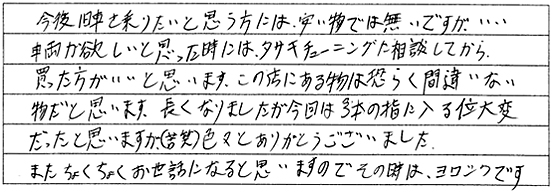 今後旧車を乗りたいと思う方には、安い物では無いですが、いい
車両が欲しいと思った時には、タサキチューニングに相談してから
買った方がいいと思います。この店にある物は恐らく間違いない
物だと思います。長くなりましたが今回は3本の指に入る位大変
だったと思いますが、(苦笑)色々とありがとうございました。
またちょくちょくお世話になると思いますのでその時は、ヨロシクです